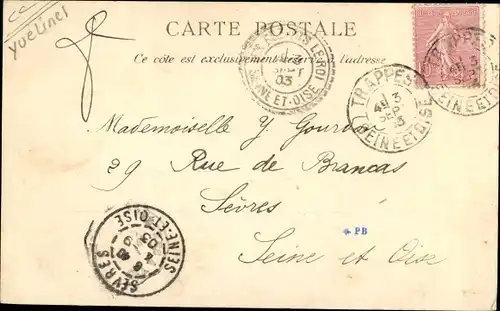 CC
Yvelines
CARTE POSTALE
Ce côté est exclusivement réservé à l'adresse
LE ROI
SEINE-ET-OISE
03
TRAPPES
3
SEINE ET OISE
TRAPPES
3
SEINE ET OISE
Mademoiselle Y. Gourdon
29 Rue de Brancas
Sèvres
PB
Seine et Oise
SÈVRES
SEINE-ET-OISE
03